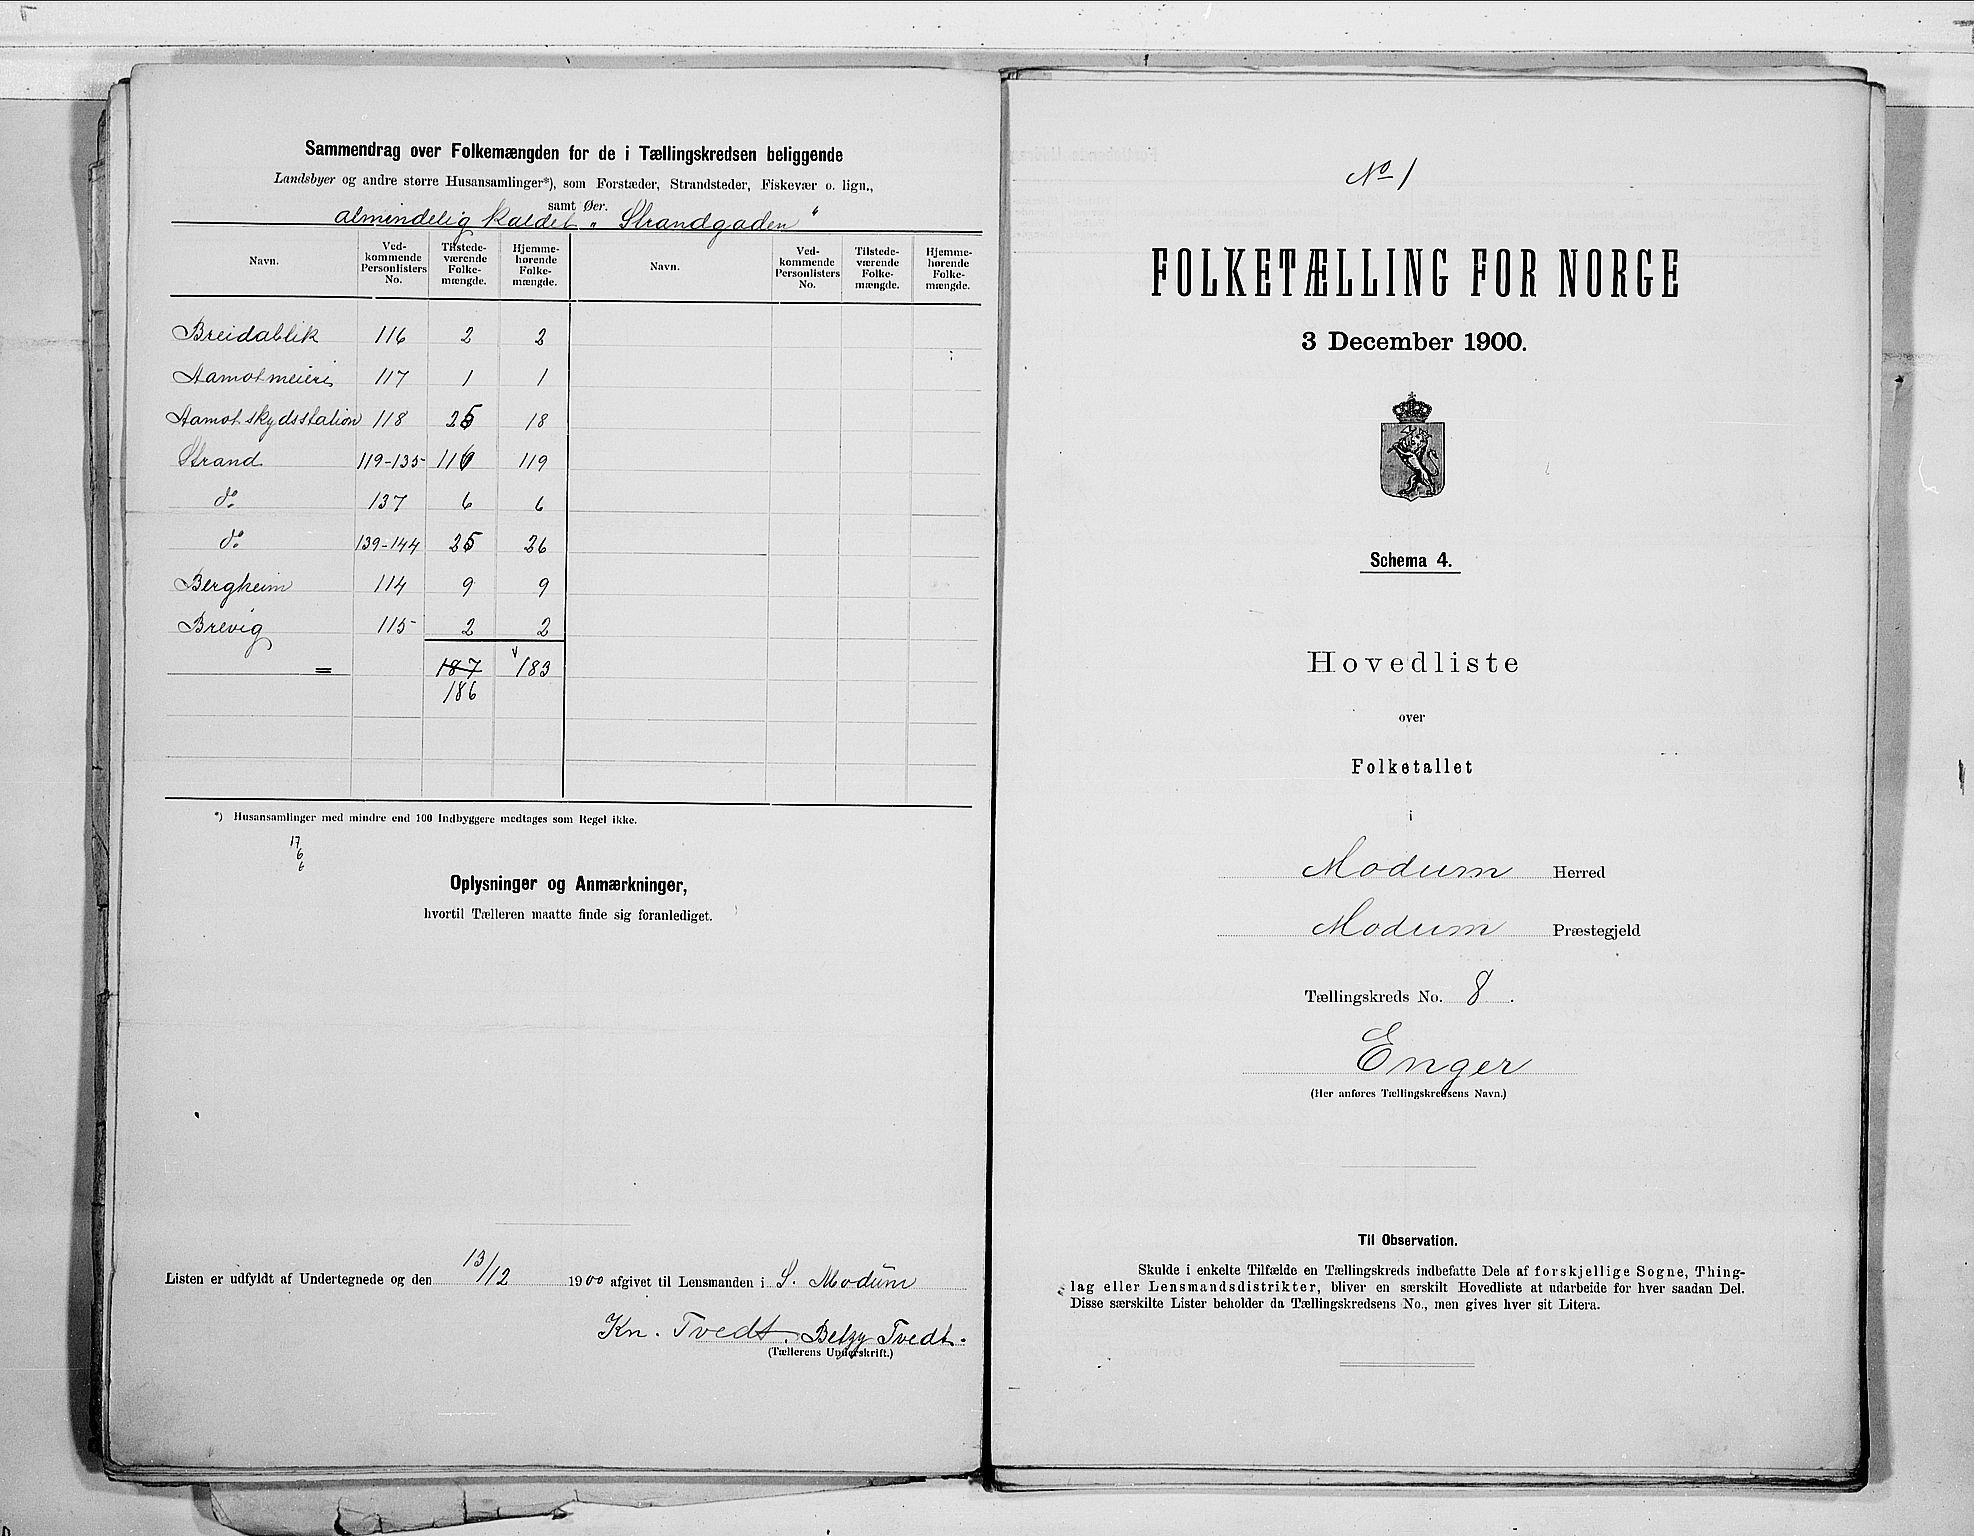 Sammendrag over Folkemængden for de i Tællingskredsen beliggende
Landsbyer og andre større Husansamlinger*), som Forstæder, Strandsteder, Fiskevær o. lign.,
samt Øer.
almindelig kaldet „Strandgaden“
Navn. Vedkommende Personlisters No. Tilstedeværende Folkemængde. Hjemmehørende Folkemængde. Navn. Vedkommende Personlisters No. Tilstedeværende Folkemængde. Hjemmehørende Folkemængde.
Breidablik 116 2 2
Aamot meieri 117 1 1
Aamot skydsstation 118 25 18
Strand 119-135 116 119
do 137 6 6
do 139-144 25 26
Bergheim 114 9 9
Brevig 115 2 2
= 187 183
186
*) Husansamlinger med mindre end 100 Indbyggere medtages som Regel ikke.
17
6
6
Oplysninger og Anmærkninger,
hvortil Tælleren maatte finde sig foranlediget.
Listen er udfyldt af Undertegnede og den 13/12 1900 afgivet til Lensmanden i S. Modum
Kn. Tvedt. Betzy Tvedt.
(Tællerens Underskrift.)
No 1
FOLKETÆLLING FOR NORGE
3 December 1900.
Schema 4.
Hovedliste
over
Folketallet
i
Modum Herred
Modum Præstegjeld
Tællingskreds No. 8.
Enger
(Her anføres Tællingskredsens Navn.)
Til Observation.
Skulde i enkelte Tilfælde en Tællingskreds indbefatte Dele af forskjellige Sogne, Thing-
lag eller Lensmandsdistrikter, bliver en særskilt Hovedliste at udarbeide for hver saadan Del.
Disse særskilte Lister beholder da Tællingskredsens No., men gives hver sit Litera.